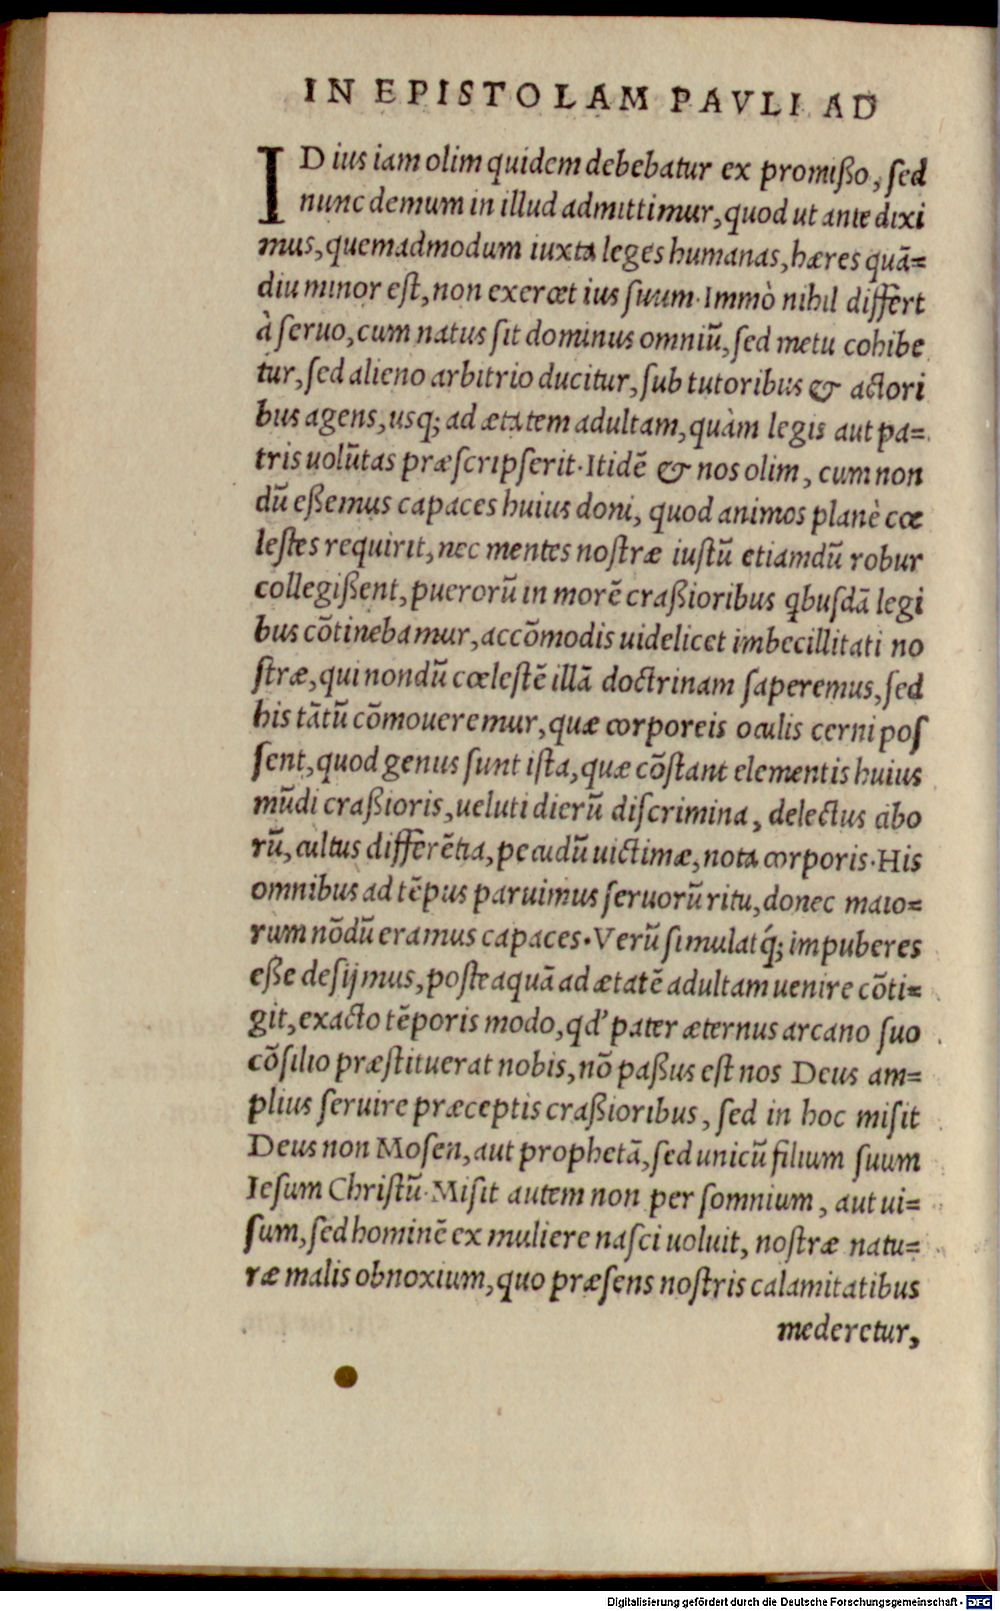 IN EPISTOLAM PAVLI AD
ID ius iam olim quidem debebatur ex promißo, sed
nunc demum in illud admittimur, quod ut ante dixi
mus, quemadmodum iuxta leges humanas, hæres quā=
diu minor est, non exercet ius suum. Immò nihil differt
à seruo, cum natus sit dominus omniū, sed metu cohibe
tur, sed alieno arbitrio ducitur, sub tutoribus & actori
bus agens, usq; ad ætatem adultam, quàm legis aut pa=
tris uolūtas præscripserit. Itidē & nos olim, cum non
dū eßemus capaces huius doni, quod animos planè cœ
lestes requirit, nec mentes nostræ iustū etiamdū robur
collegißent, puerorū in morē craßioribus qbusdā legi
bus cōtinebamur, accōmodis uidelicet imbecillitati no
stræ, qui nondū cœlestē illā doctrinam saperemus, sed
his tātū cōmoueremur, quæ corporeis oculis cerni pos
sent, quod genus sunt ista, quæ cōstant elementis huius
mūdi craßioris, ueluti dierū discrimina, delectus cibo
rū, cultus differētia, pecudū uictimæ, nota corporis. His
omnibus ad tēpus paruimus seruorū ritu, donec maio=
rum nōdū eramus capaces. Verū simulatq́; impuberes
eße desijmus, posteaquā ad ætatē adultam uenire cōti=
git, exacto tēporis modo, qd' pater æternus arcano suo
cōsilio præstituerat nobis, nō paßus est nos Deus am=
plius seruire præceptis craßioribus, sed in hoc misit
Deus non Mosen, aut prophetā, sed unicū filium suum
Iesum Christū. Misit autem non per somnium, aut ui=
sum, sed hominē ex muliere nasci uoluit, nostræ natu=
ræ malis obnoxium, quo præsens nostris calamitatibus
mederetur,
Digitalisierung gefördert durch die Deutsche Forschungsgemeinschaft - DFG